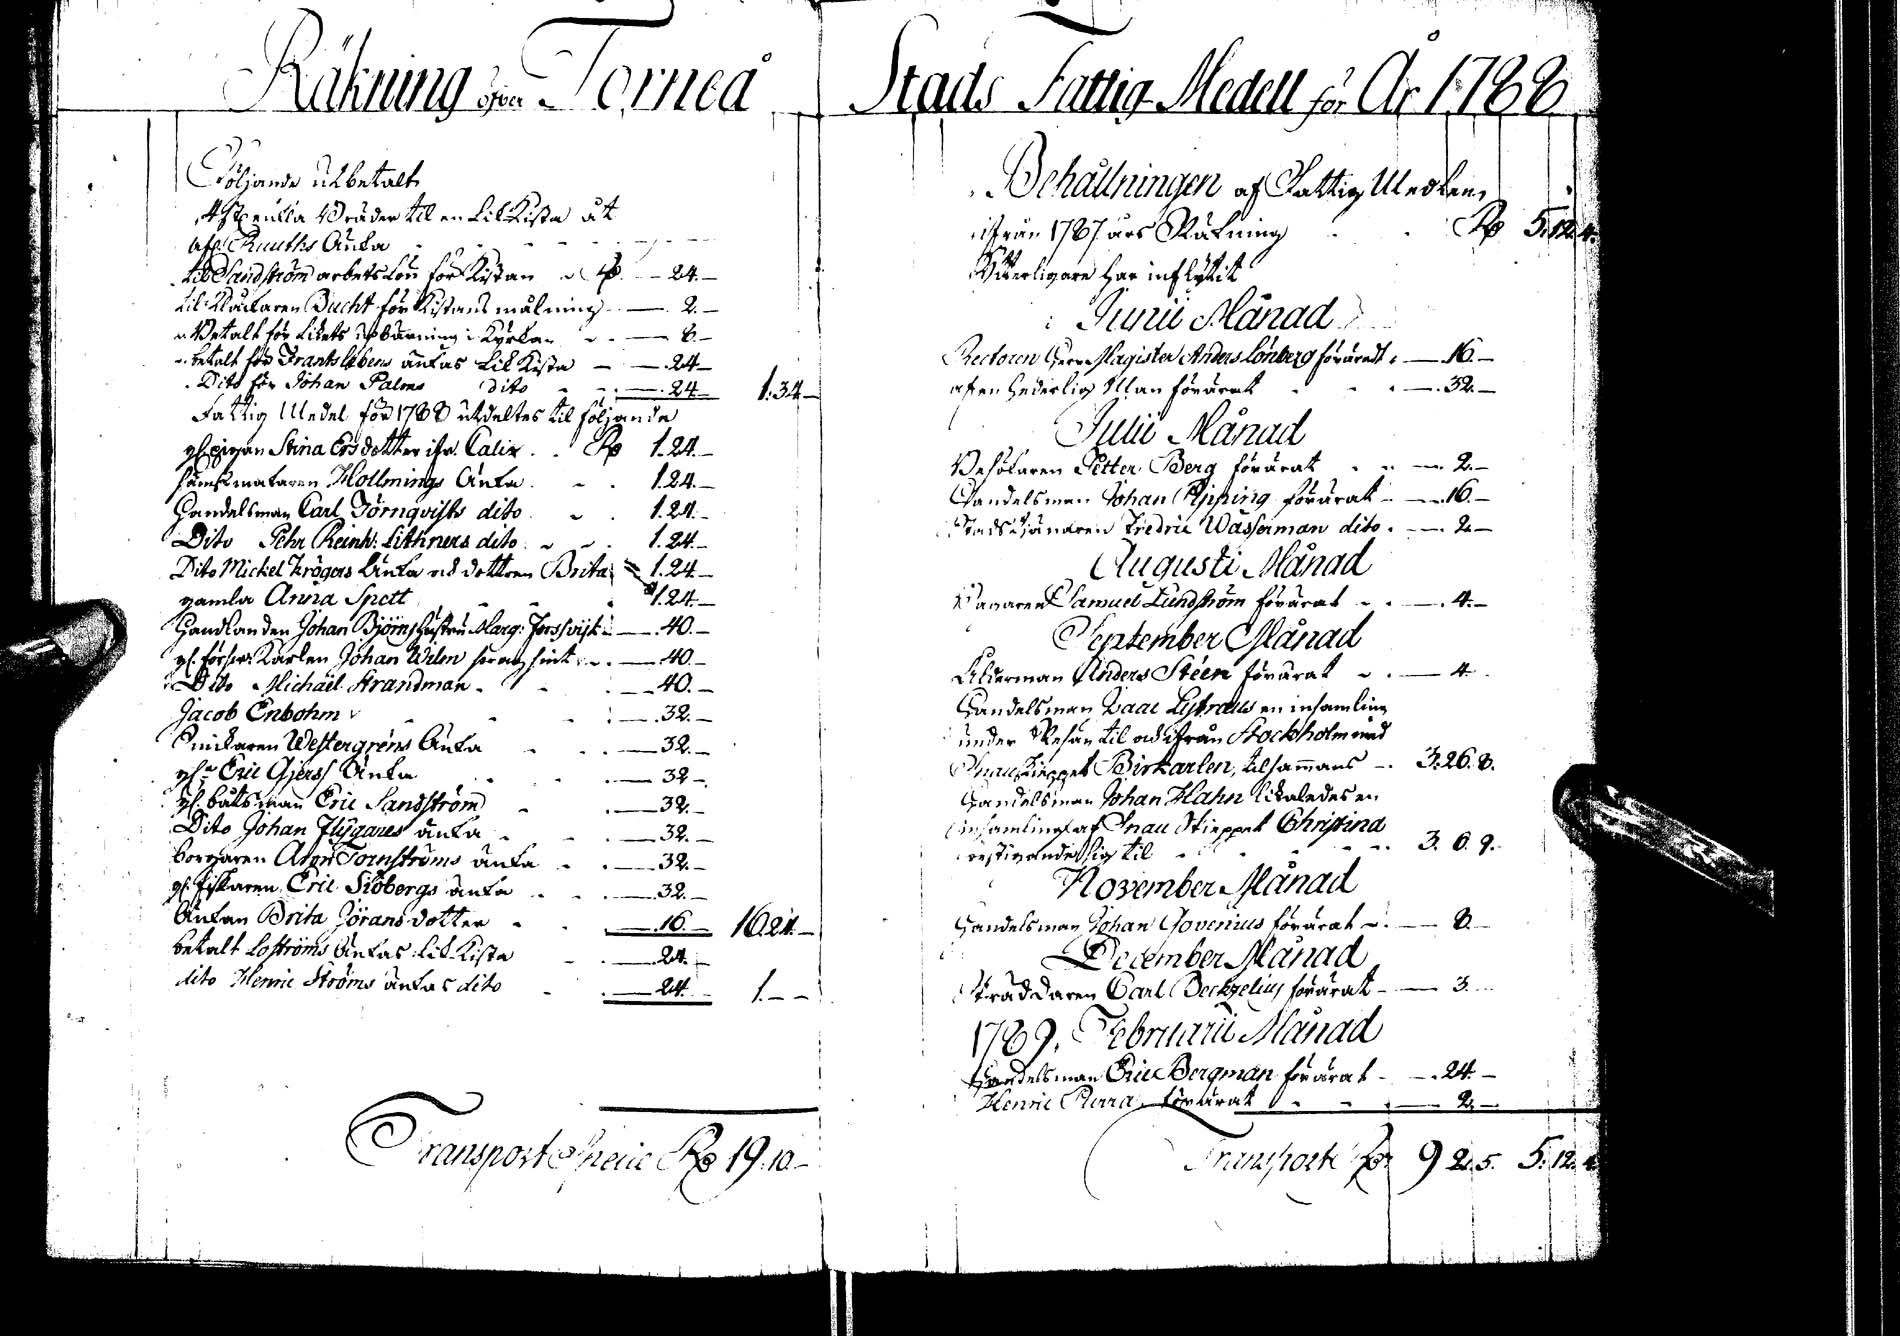 Räkning öfver Torneå Stads Fattig-Medell för År 1788
Följande utbetalt
4 st enkla Bräder til en Lik Kista åt
afl. Ruuths Änka
til Sandström arbetslön för Kistan 24.—
til Målaren Bucht för Kistans målning 2.—
Betalt för Likets upbärning i Kyrkan 8.—
betalt för Frantslebens änkas Lik Kista 24.—
Dito för Johan Palms Dito 24.— 1.34.—
Fattig Medel för 1788 utdeltes til följande
gl. pigan Stina Ersdotter ifr. Calix Rd 1.24.—
Hollmings Änka 1.24.—
Handelsman Carl Törnqvists dito 1.24.—
Dito Pehr Reinh: Lithners dito 1.24.—
Dito Mickel Krögers Änka och dottren Brita 1.24.—
gamla Anna Spett 1.24.—
Handlanden Johan Björns hustru Marg: Forssvik 40.—
Karlen Johan Wilm 40.—
Dito Michäel Strandman 40.—
Jacob Enbohm 32.—
Snickaren Westergréns Änka 32.—
Eric Gjerss Änka 32.—
gl. båtsman Eric Sandström 32.—
Dito Johan Flygares änka 32.—
borgaren Aron Tornströms änka 32.—
gl. fiskaren Eric Siöbergs änka 32.—
Änkan Brita Jöransdotter 16.— 16.24.—
betalt Loströms Änkas Lik-Kista 24.—
dito Henric Ströms änkas dito 24.— 1.—.—
Transport Specie Rd 19.10.—
Behållningen af Fattig Medlen
ifrån 1787 års Räkning Rd 5.12.4.
Ytterligare har inflytit
Junii Månad
Rectoren Herr Magister Anders Lönberg förärat 16.—
af en Hederlig Man förärat 32.—
Julii Månad
Besökaren Petter Berg förärat 2.—
Handelsman Johan Pipping förärat 16.—
Stads tjänaren Fredric Wasserman dito 2.—
Augusti Månad
Samuel Lundström förärat 4.—
September Månad
Ålderman Anders Stéen förärat 4.
Handelsman Isaac Lythraeus en insamling
under Resan til och ifrån Stockholm med
Snauskieppet Birkarlen, tilsammans 3.26.8.
Handelsman Johan Hahn likaledes en
insamling af Snau Skieppet Christina
bestigande sig til 3.6.9.
November Månad
Handelsman Johan Govenius förärat 8.—
December Månad
Skräddaren Carl Beckzelius förärat 3.
1789. Februarii Månad
Handelsman Eric Bergman förärat 24.—
Henric Purra förärat 2.—
Transport Rd 9 2.5. 5.12.4